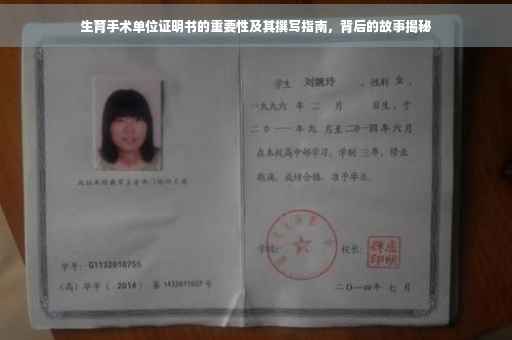 生育手术单位证明书的重要性及其撰写指南，背后的故事揭秘
学生 刘婉玲 ，性别 女 ，
一九九六 年 二 月 日生，于
二〇一一 年 九 月至 二〇一四 年 六 月
在本校高中部学习，学制 三 年，修业
期满，成绩合格，准予毕业。
学校：
校长：
学号： G1132010755
（高）毕字（ 2014 ）第 1432011027 号
二〇一四年 七 月